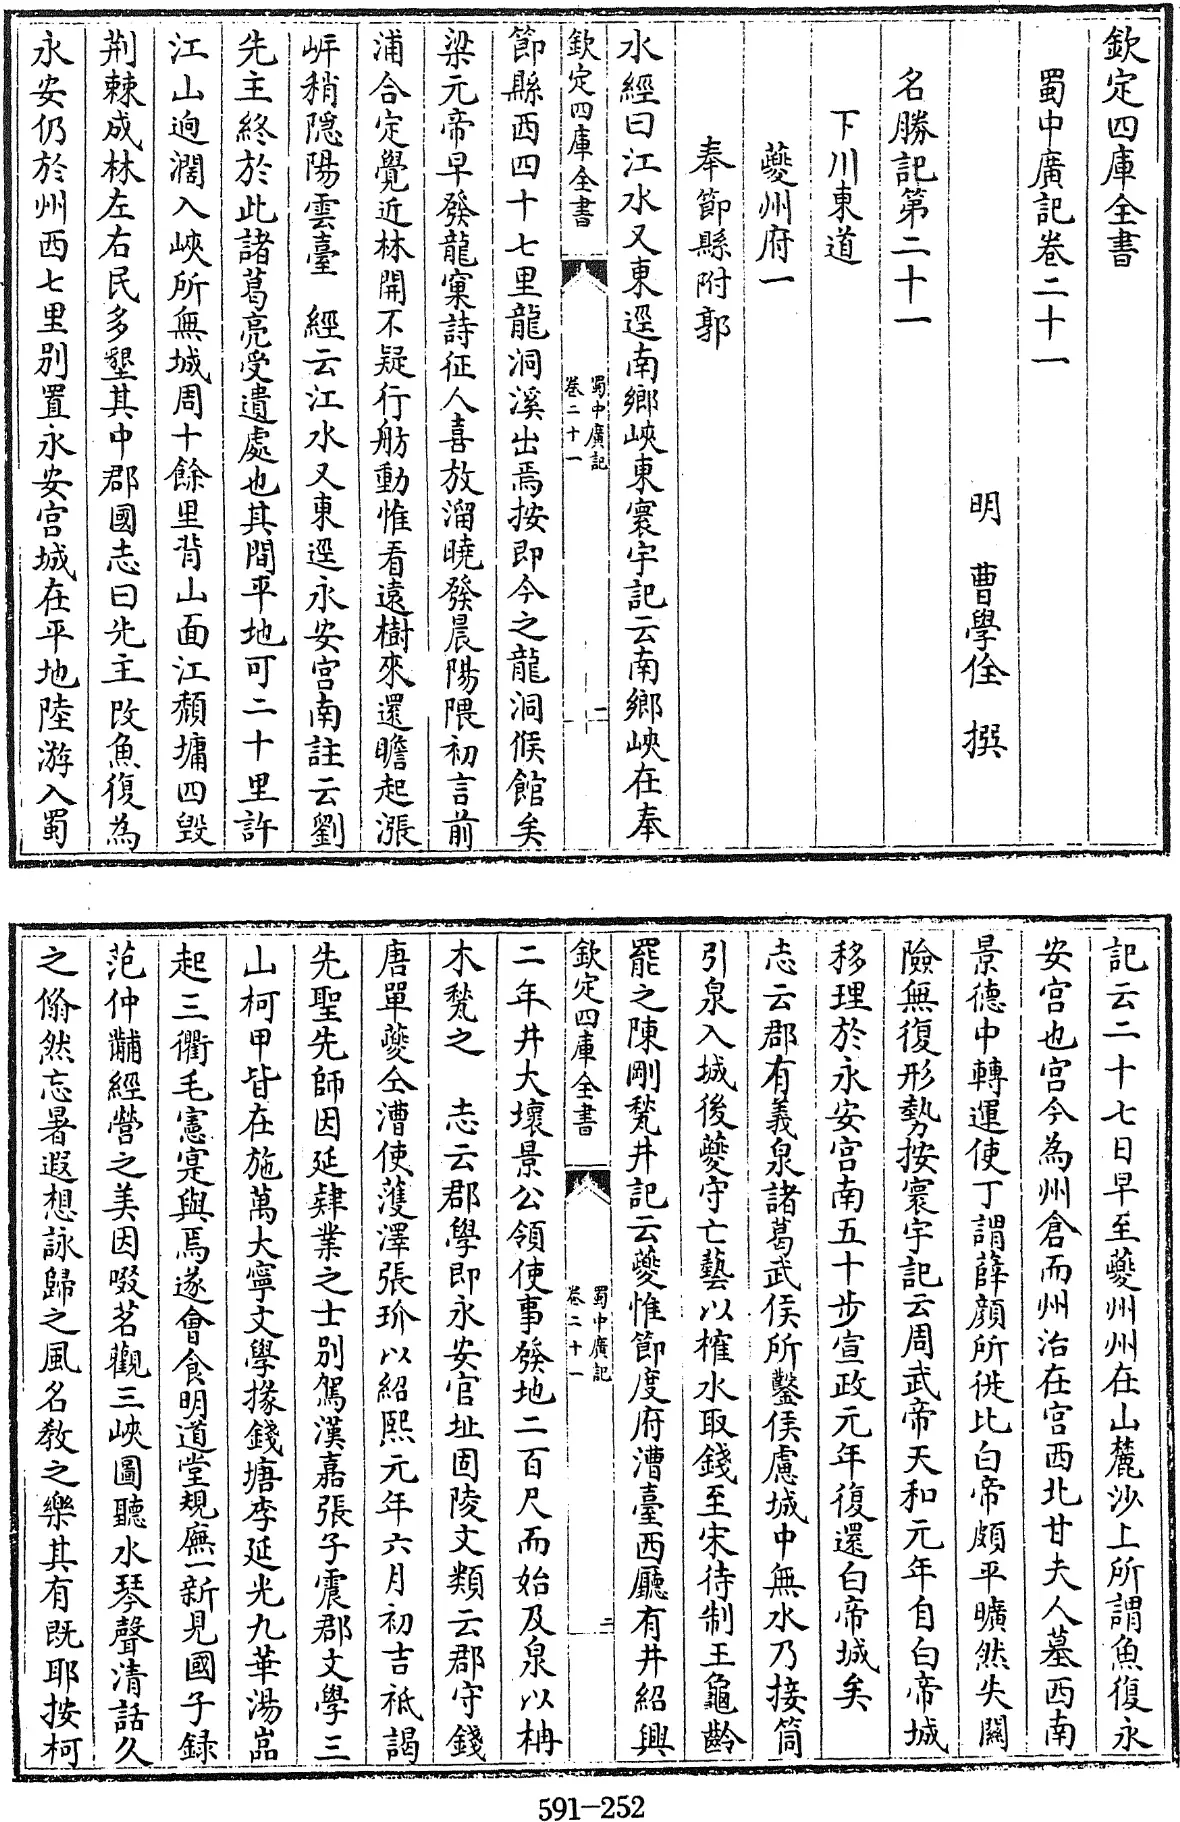 欽定四庫全書
蜀中廣記卷二十一
明　曹學佺　撰
名勝記第二十一
下川東道
夔州府一
奉節縣附郭
水經曰江水又東逕南鄉峽東寰宇記云南鄉峽在奉
欽定四庫全書
蜀中廣記
卷二十一
節縣西四十七里龍洞溪出焉按即今之龍洞候館矣
梁元帝早發龍窠詩征人喜放溜曉發晨陽隈初言前
浦合定覺近林開不疑行舫動惟看遠樹來還瞻起漲
岸稍隱陽雲臺　經云江水又東逕永安宮南註云劉
先主終於此諸葛亮受遺處也其間平地可二十里許
江山逈濶入峽所無城周十餘里背山面江頹墉四毀
荆棘成林左右民多墾其中郡國志曰先主改魚復為
永安仍於州西七里別置永安宮城在平地陸游入蜀
記云二十七日早至夔州州在山麓沙上所謂魚復永
安宮也宮今為州倉而州治在宮西北甘夫人墓西南
景德中轉運使丁謂薛顔所徙比白帝頗平曠然失關
險無復形勢按寰宇記云周武帝天和元年自白帝城
移理於永安宮南五十步宣政元年復還白帝城矣
志云郡有義泉諸葛武侯所鑿侯慮城中無水乃接筒
引泉入城後夔守亡藝以榷水取錢至宋待制王龜齡
罷之陳剛甃井記云夔惟節度府漕臺西廳有井紹興
欽定四庫全書
蜀中廣記
卷二十一
二
二年井大壞景公領使事發地二百尺而始及泉以柟
木甃之　志云郡學即永安官址固陵文類云郡守錢
唐單夔仝漕使蒦澤張玠以紹熙元年六月初吉祗謁
先聖先師因延肄業之士別駕漢嘉張子震郡文學三
山柯甲皆在施萬大寧文學掾錢塘李延光九華湯嵓
起三衢毛憲寔與焉遂會食明道堂規廡一新見國子録
范仲黼經營之美因啜茗觀三峽圖聽水琴聲清話久
之翛然忘暑遐想詠歸之風名教之樂其有既耶按柯
591—252